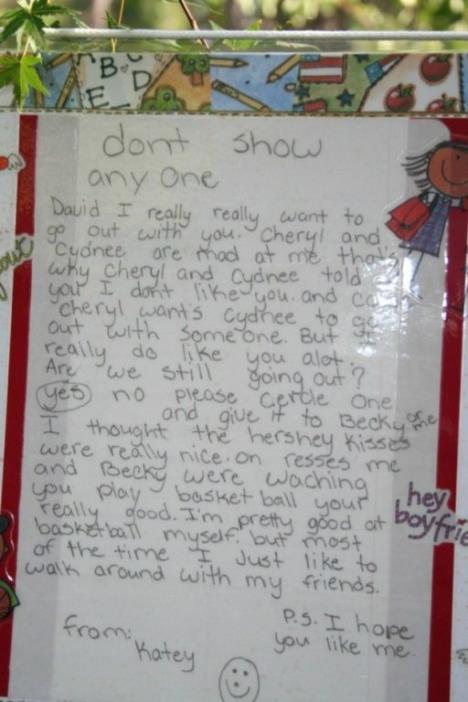 A
B
C
D
E
dont show
any one
David I really really want to
go out with you. Cheryl and
Cydnee are mad at me that's
why Cheryl and Cydnee told
you I dont like you. and
Cheryl want's Cydnee to go
out with someone. But I
really do like you alot.
Are we still going out?
yes no please cercle one
and give it to Becky or me
I thought the hershey kisses
were really nice. on resses me
and Becky were waching
you play basket ball your
really good. I'm pretty good at
basketball myself. but most
of the time I Just like to
walk around with my friends.
P.S. I hope
you like me.
from:
Katey
hey
boyfrie